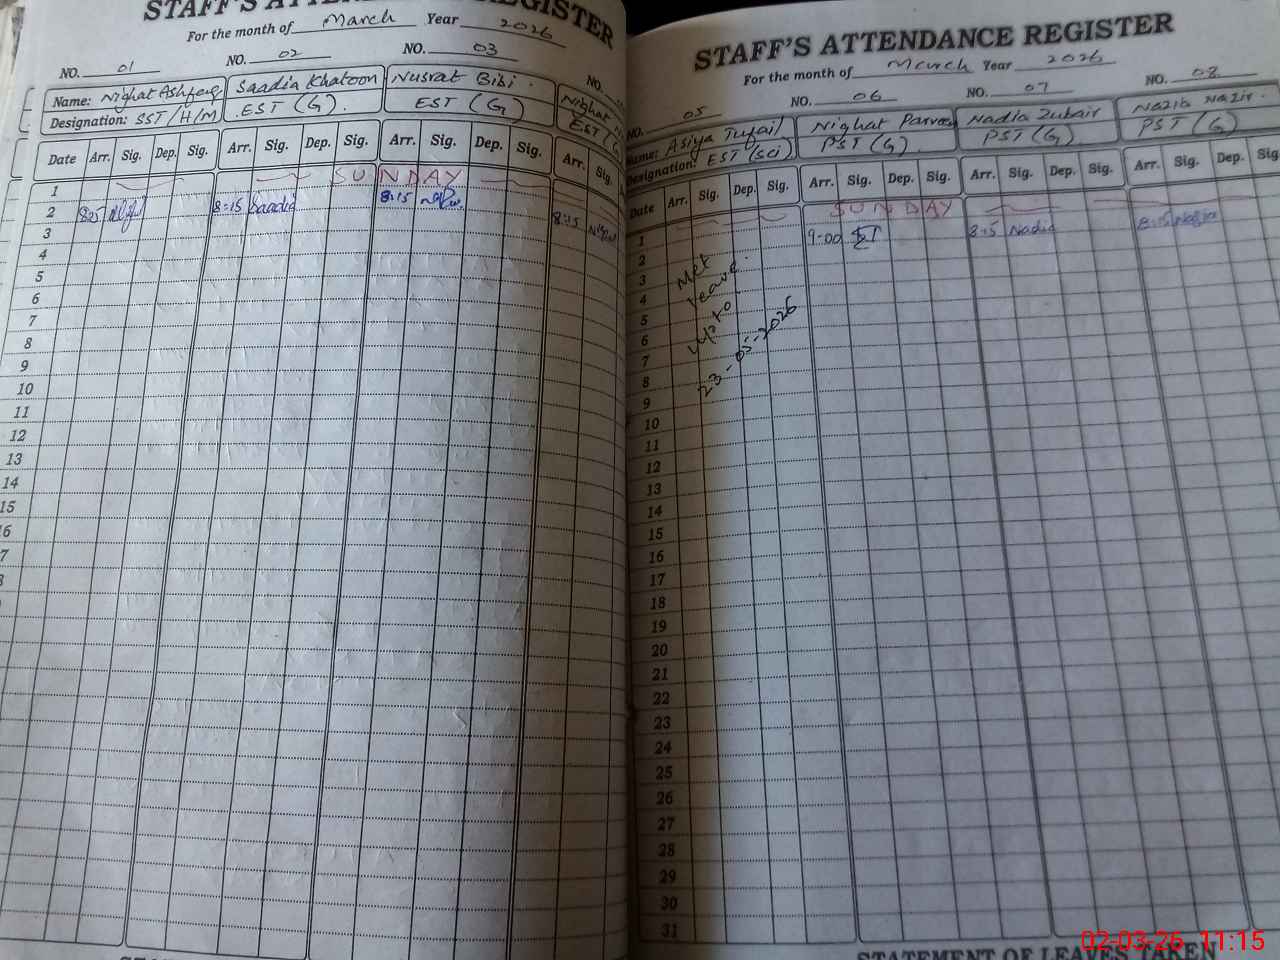 STAFF'S ATTENDANCE REGISTER
For the month of March Year 2026
NO. 01 NO. 02 NO. 03 NO.
Name: Nighat Ashfaq Saadia Khatoon Nusrat Bibi. Nighat
Designation: SST/H/M EST (G). EST (G) EST (G)
Date Arr. Sig. Dep. Sig. Arr. Sig. Dep. Sig. Arr. Sig. Dep. Sig. Arr. Sig.
1 SUNDAY
2 8:15 Saadia 8:15 8:15
3
4
5
6
7
8
9
10
11
12
13
14
15
16
7
8
STAFF'S ATTENDANCE REGISTER
For the month of March Year 2026
NO. 05 NO. 06 NO. 07 NO. 08
Name: Asiya Tufail Nighat Parveen Nadia Zubair Nazib Nazir.
Designation: EST (Sci) PST (G) PST (G) PST (G)
Date Arr. Sig. Dep. Sig. Arr. Sig. Dep. Sig. Arr. Sig. Dep. Sig. Arr. Sig. Dep. Sig.
1 SUNDAY
2 9-00 8:15 Nadia 8:15 Nazia
3 Met
4 leave.
5
6 upto
7
8 23-05-2026
9
10
11
12
13
14
15
16
17
18
19
20
21
22
23
24
25
26
27
28
29
30
31
STATEMENT OF LEAVES TAKEN
02-03-26 11:15